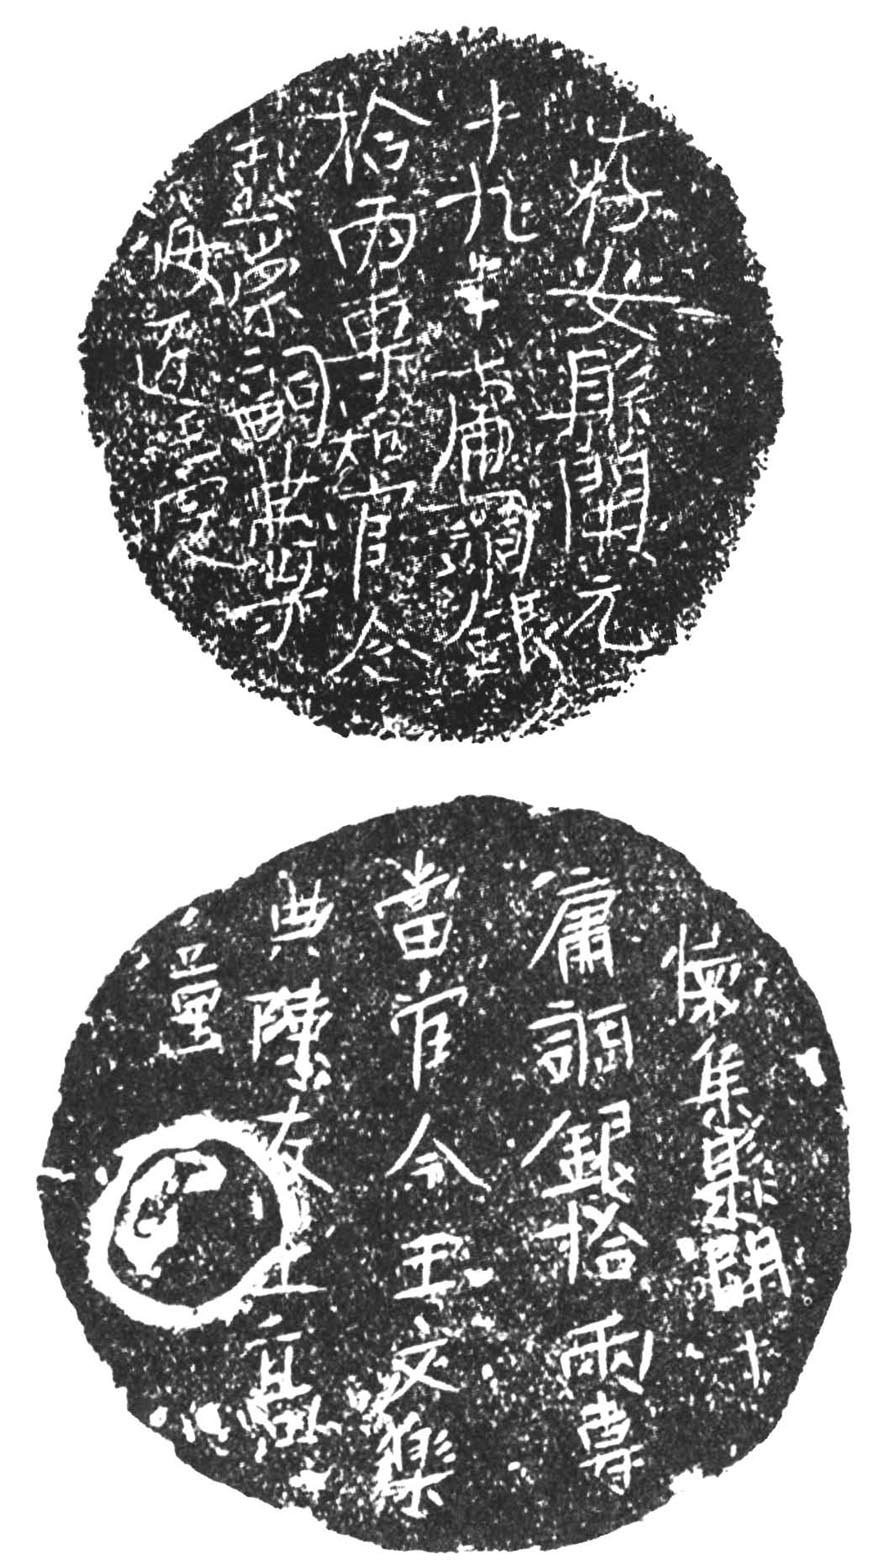 洊安縣開元
十九年庸調銀
拾兩專知官令
彭崇嗣典
海匠王定
懷集縣開十
庸調銀拾兩專
當官令王文樂
典陳友匠高
童